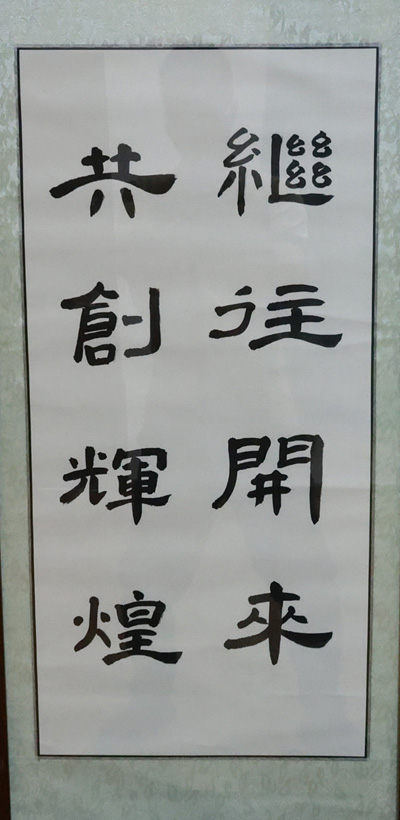 繼往開來
共創輝煌